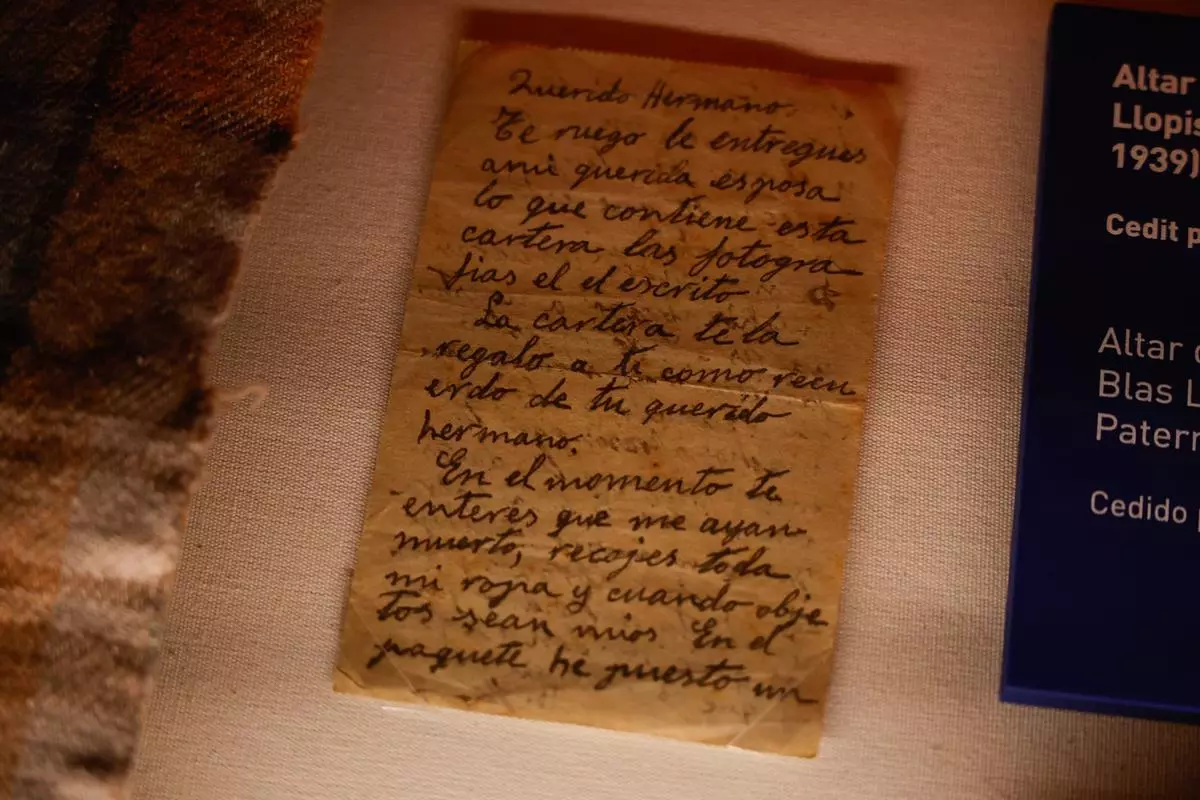 Querido Hermano.
Te ruego le entregues
ami querida esposa
lo que contiene esta
cartera las fotogra
fias el el escrito
La cartera te la
regalo a ti como recu
erdo de tu querido
hermano.
En el momento te
enteres que me ayan
muerto, recojes toda
mi ropa y cuando obje
tos sean mios En el
paquete he puesto un
Altar
Llopis
1939)
Cedit p
Altar
Blas L
Patern
Cedido